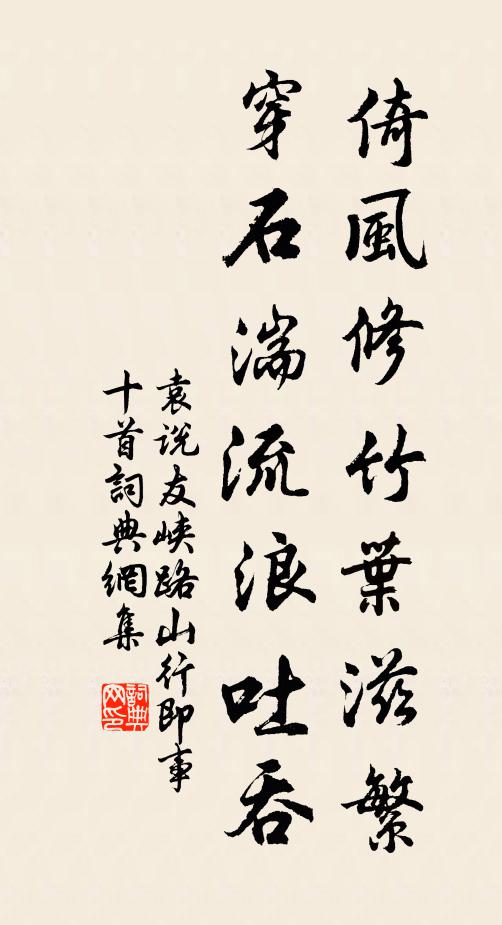 倚風修竹葉滋繁
穿石湍流浪吐吞
袁説友峽路山行即事
十首詞典網集
詞典
网印